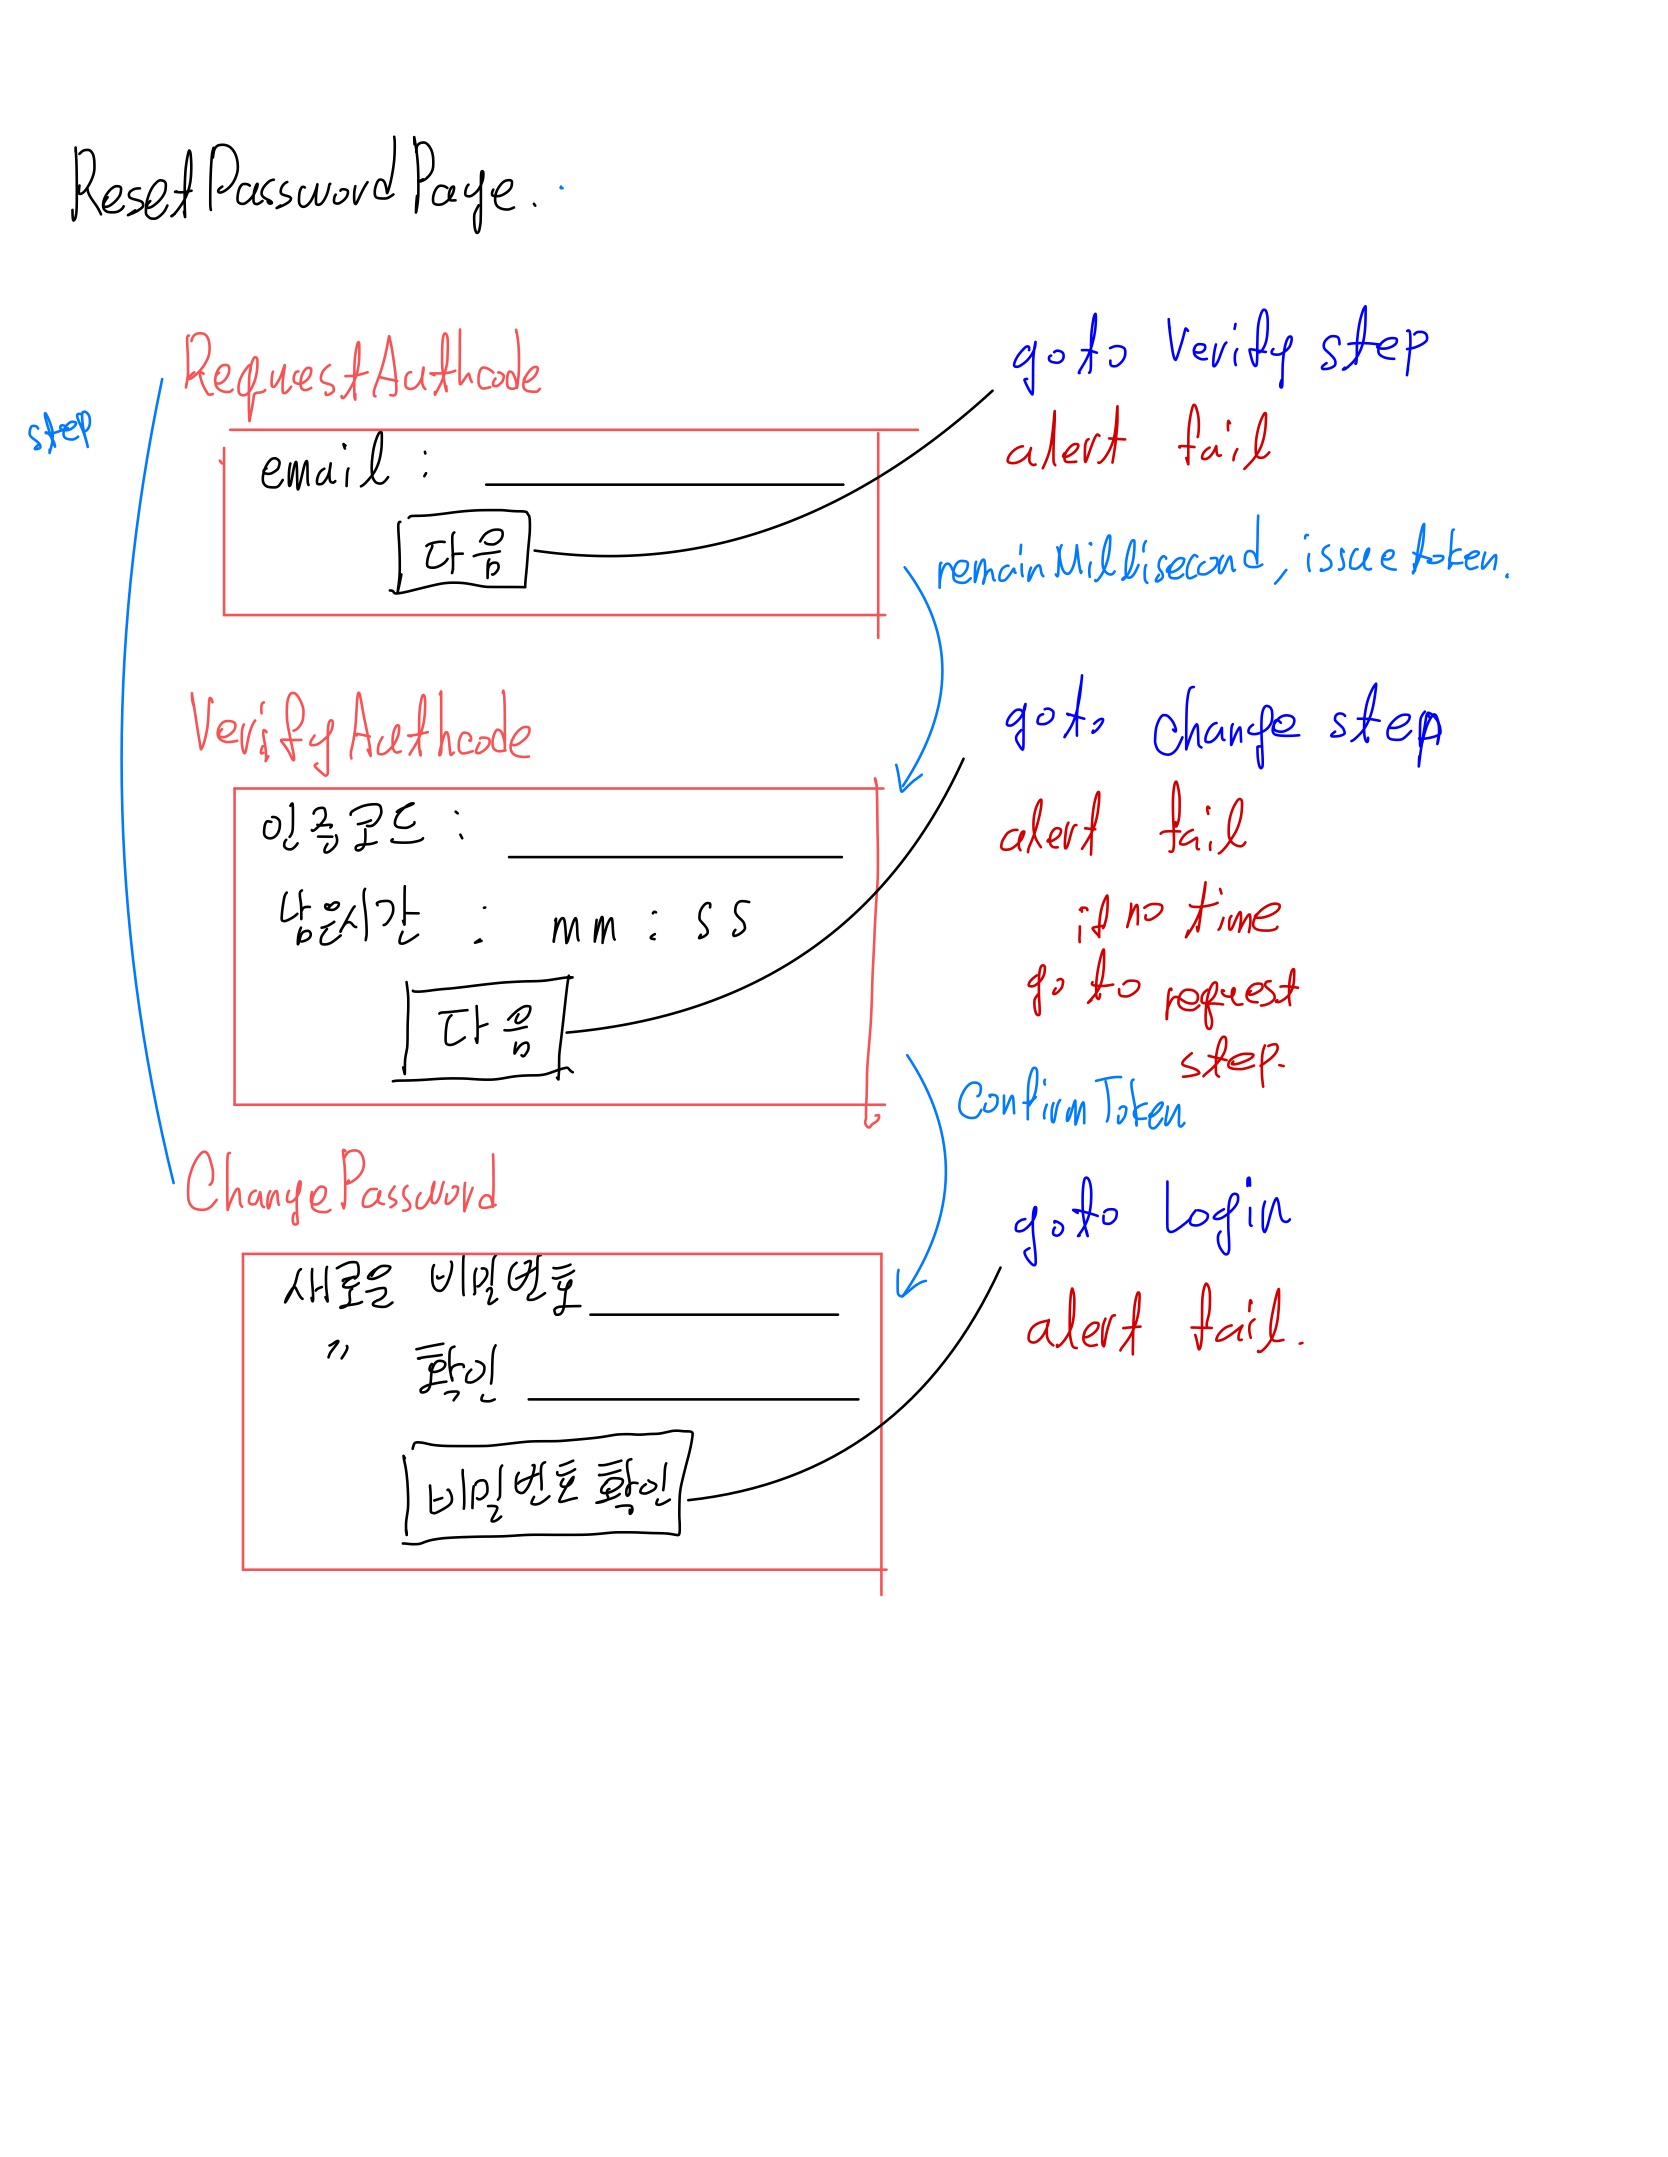 ResetPasswordPage.
step
RequestAuthcode
email :
다음
goto Verify step
alert fail
remainMillisecond, issuetoken.
VerifyAuthcode
인증코드 :
남은시간 : mm : ss
다음
goto change step
alert fail
if no time
go to request
step.
ConfirmToken
ChangePassword
새로운 비밀번호
〃 확인
비밀번호 확인
goto Login
alert fail.